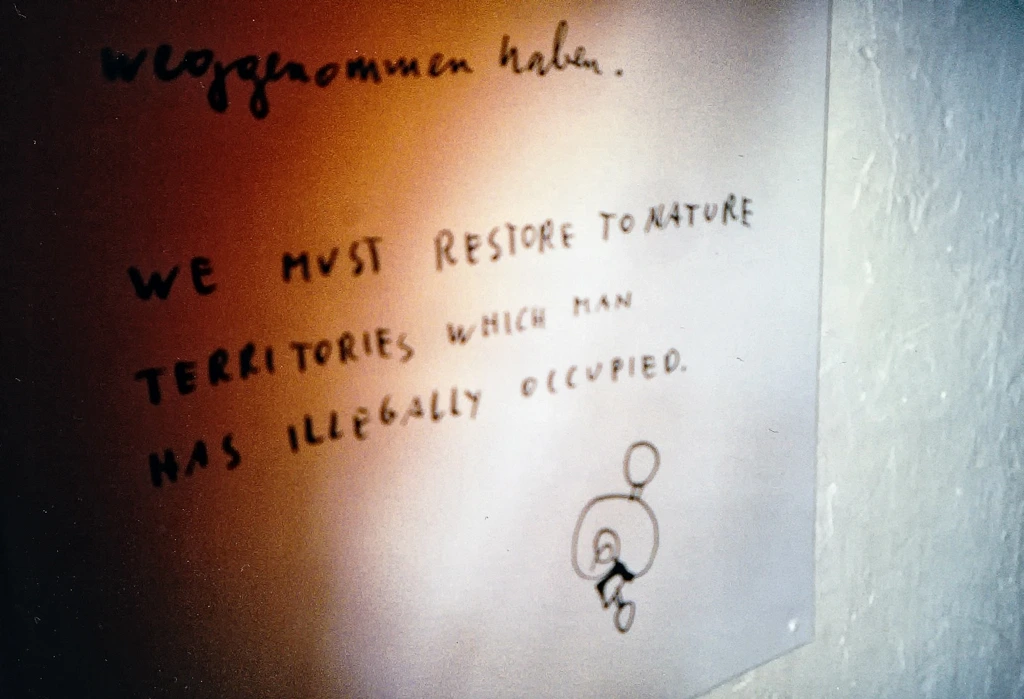 weggenommen haben.
WE MUST RESTORE TO NATURE
TERRITORIES WHICH MAN
HAS ILLEGALLY OCCUPIED.